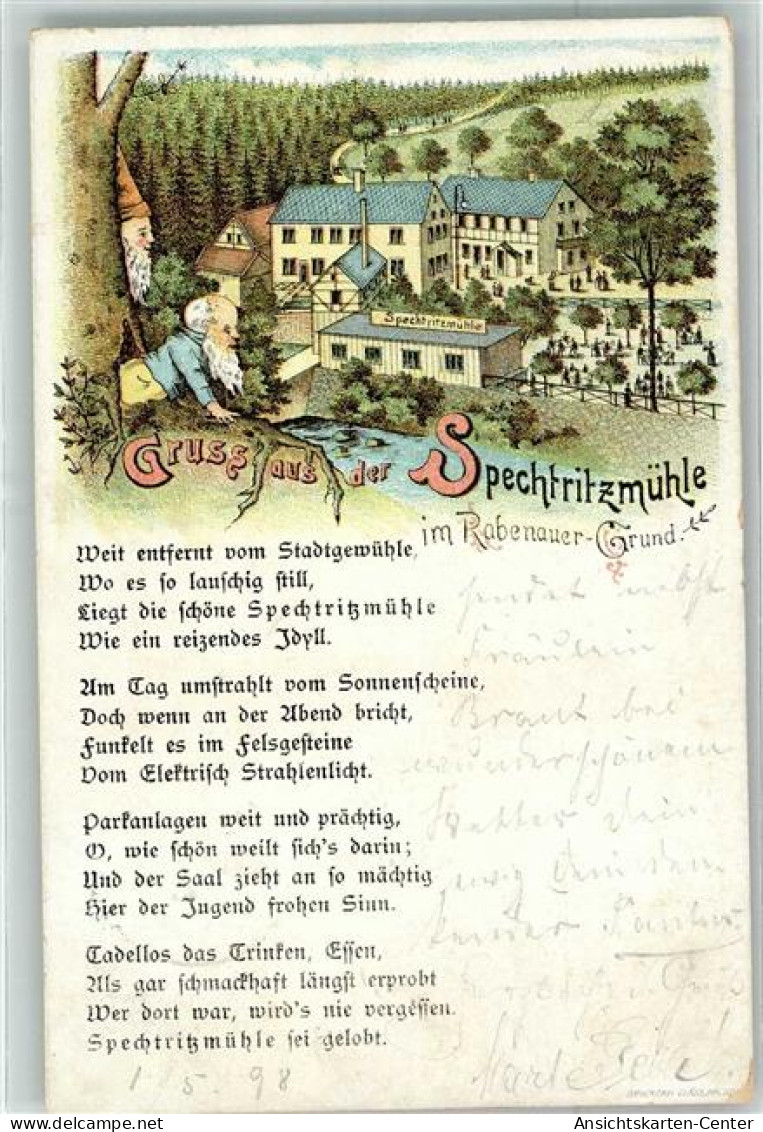 Spechtritzmühle
Gruss aus der Spechtritzmühle
im Rabenauer-Grund.
Weit entfernt vom Stadtgewühle,
Wo es so lauschig still,
Liegt die schöne Spechtritzmühle
Wie ein reizendes Idyll.
Am Tag umstrahlt vom Sonnenscheine,
Doch wenn an der Abend bricht,
Funkelt es im Felsgesteine
Vom Elektrisch Strahlenlicht.
Parkanlagen weit und prächtig,
O, wie schön weilt sich's darin;
Und der Saal zieht an so mächtig
Hier der Jugend frohen Sinn.
Tadellos das Trinken, Essen,
Als gar schmackhaft längst erprobt
Wer dort war, wird's nie vergessen.
Spechtritzmühle sei gelobt.
sendet nebst
Fräulein
Braut bei
wunderschönem
Wetter Dein
ewig
1/5. 98
Ansichtskarten-Center